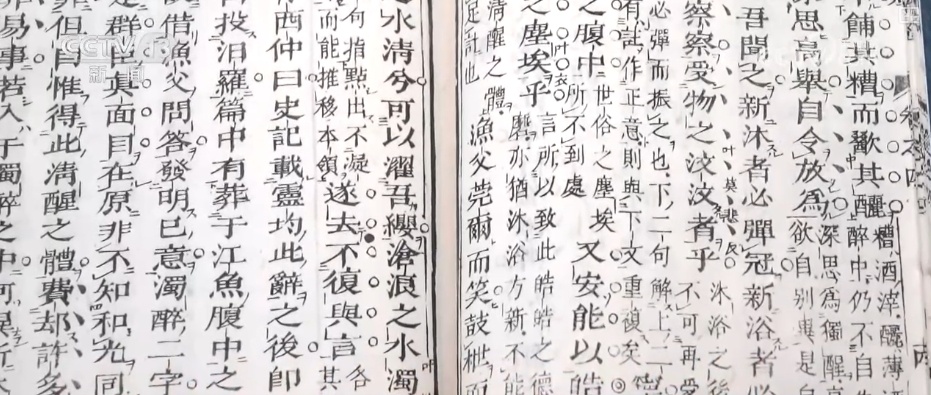 CCTV 13
新闻
餔其糟而歠其醨
糟酒滓醨薄
醉中仍不自
思高舉自令放爲
深思爲獨醒高
欲自别與是自
吾聞之新沐者必彈冠新浴者必
察察受物之汶汶者乎
沐浴之後
不可再受
必彈而振之也下二句解上二
有試作正意則與下文重複矣◎
之腹中
世俗之塵埃
所不到處
又安能以皓
之塵埃乎
言所以致此皓皓之德
亦猶沐浴方新不能
清麈之體
足託也
漁父莞爾而笑鼓枻而
之水清兮可以濯吾纓滄浪之水濁
句指點出不凝
而能推移本領
遂去不復與言
各
其
西仲曰史記載靈均此辭之後卽
投汨羅篇中有葬于江魚腹中之
借漁父問答發明已意濁醉二字
是群臣眞面目在原非不知和光同
但自惟得此淸醒之體費却許多
易事若入于濁醉之中可